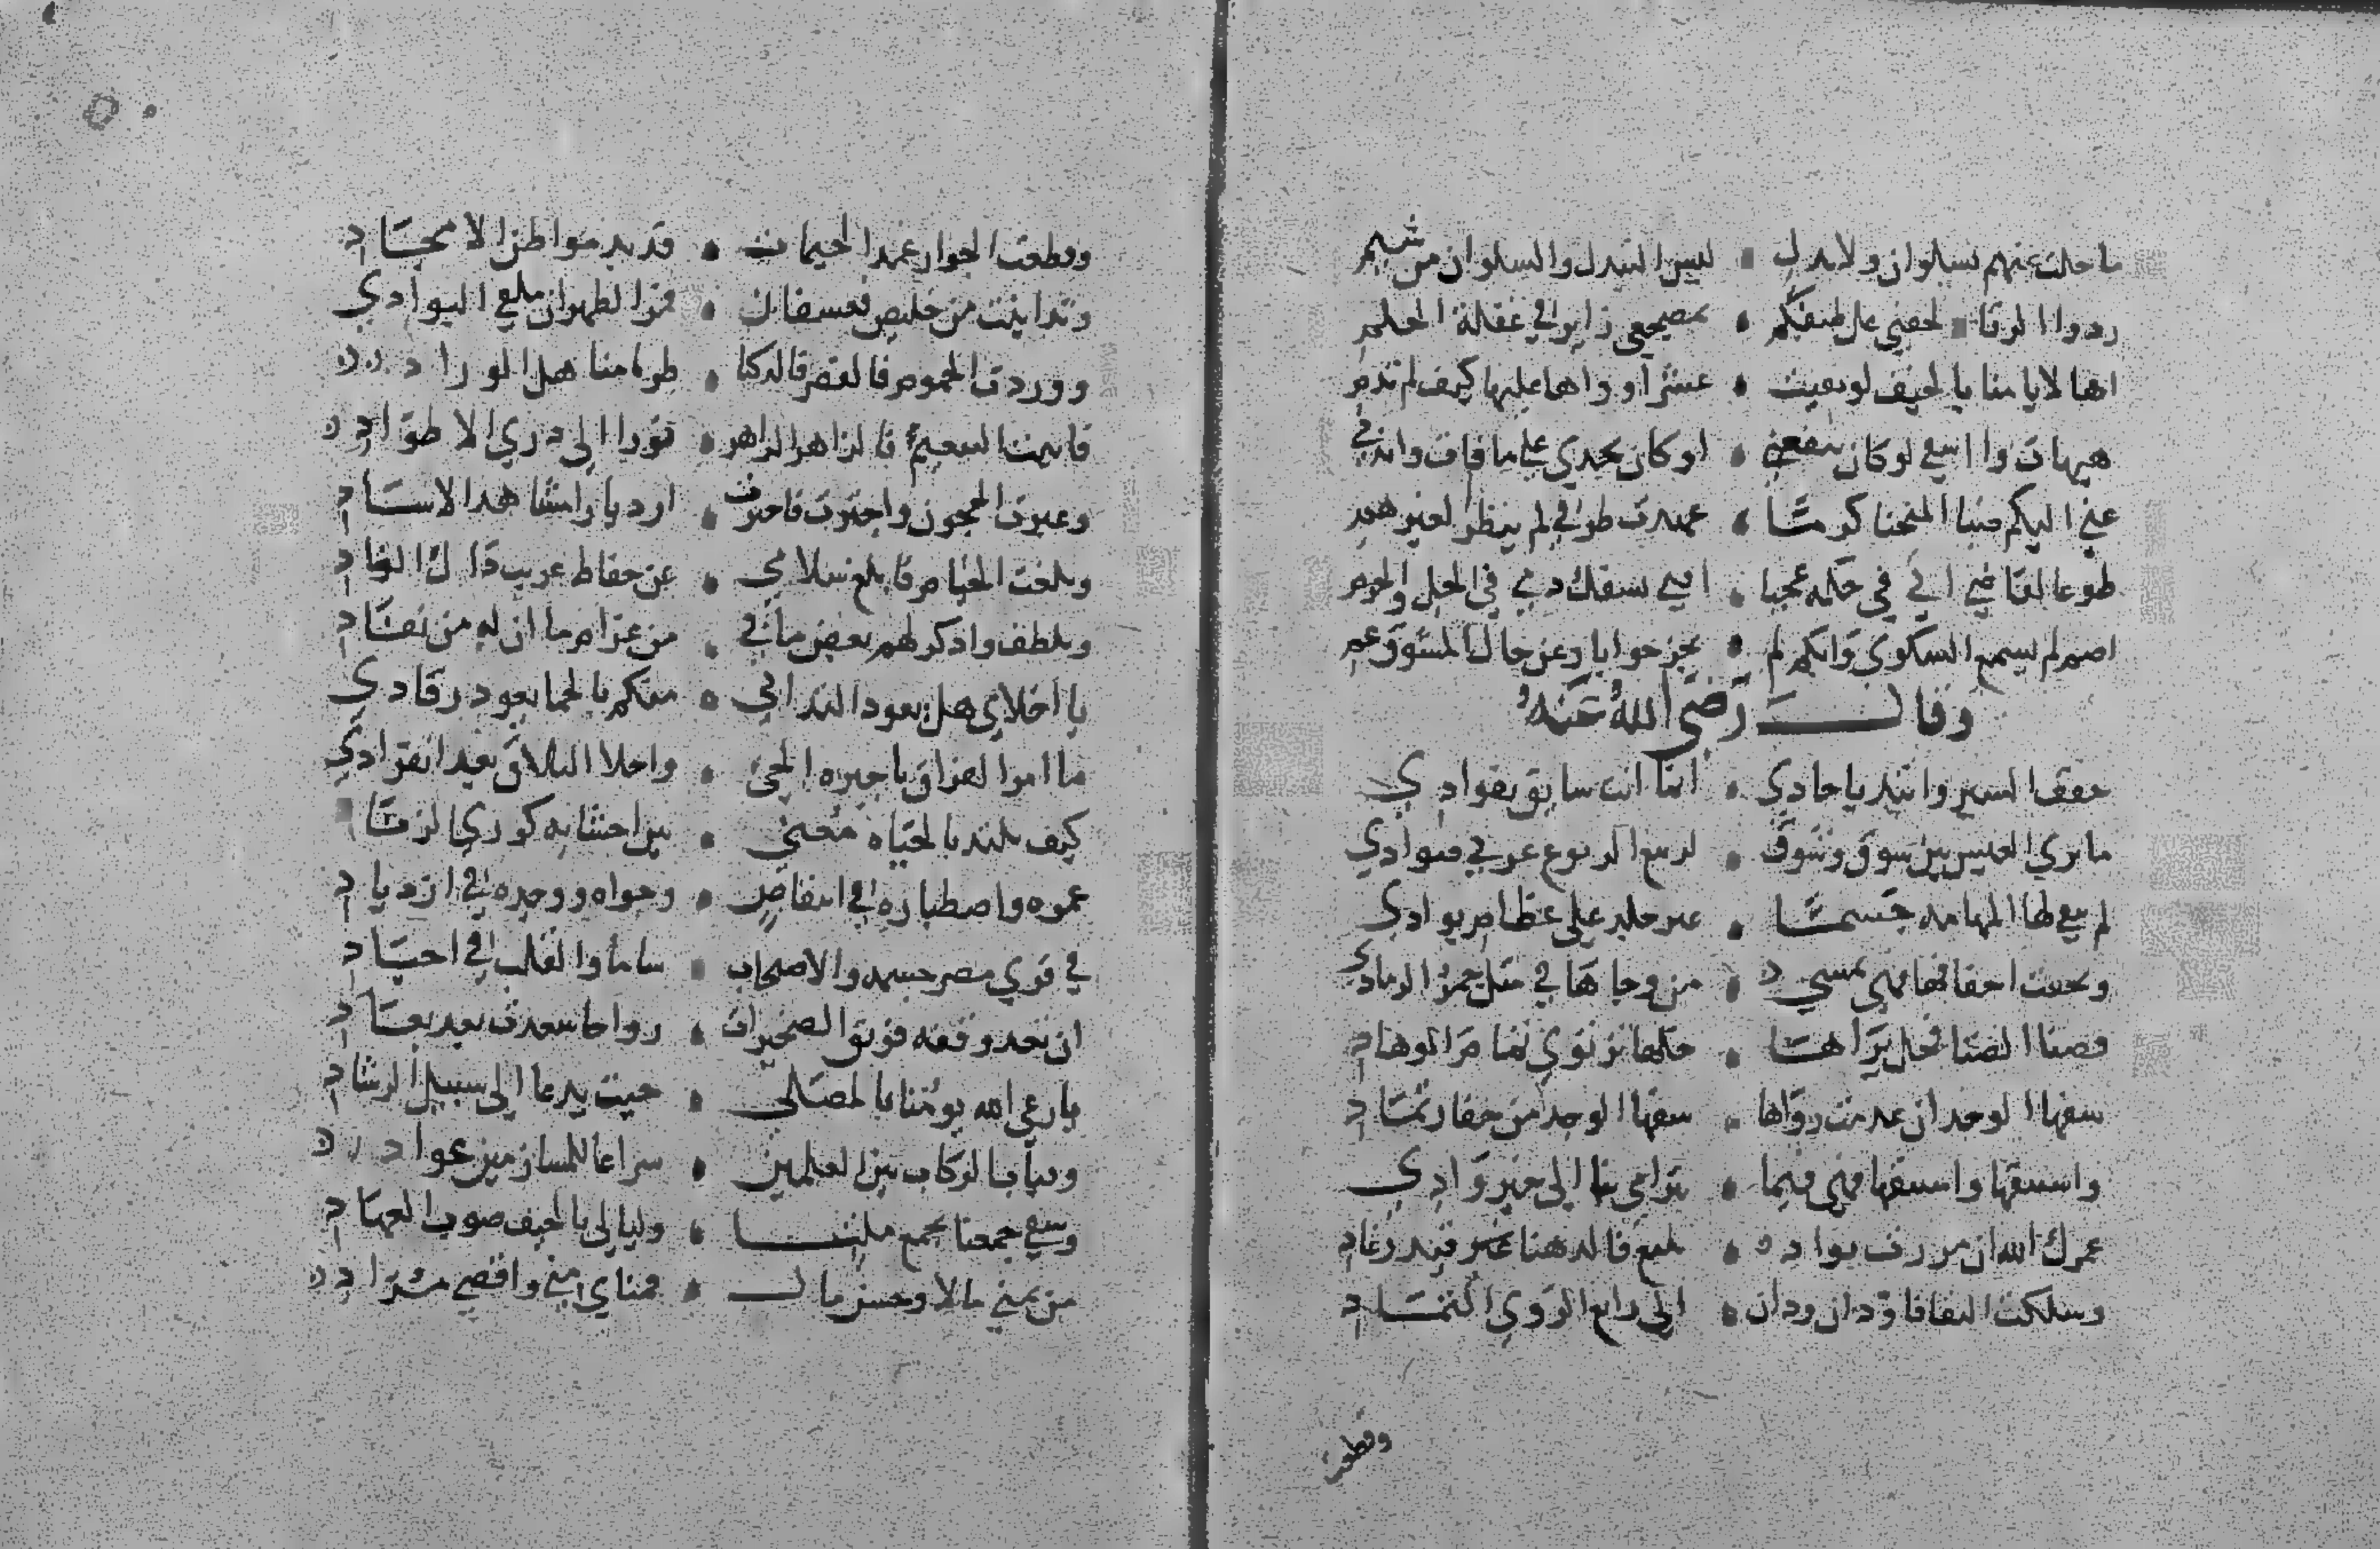 ما حلت عنهم بسلوان ولا بدل • ليس التبدل والسلوان من شيم
ردوا الرقاد لجفني عل طيفكم • بمضجعي زاير في غفلة الحلم
اها لايامنا بالخيف لو بقيت • عشرا وواها عليها كيف لم تدم
هيهات واا سفي لو كان ينفعني • او كان يجدي على ما فات واندمي
عني اليكم ظبا المنحنا كرما • عهدت طرفي لم ينظر لغيرهم
طوعا لقاض اتي في حكمه عجبا • افتي بسفك دمي في الحل والحرم
اصم لم يسمع الشكوى وابكم لم • يحر جوابا وعن حال المشوق عم
وقال رَضَى اللهُ عَنهُ
خفف السير واتيد يا حادي • انما انت سايق بفوادي
ما تري العيس بين سوق وشوق • لربيع الربوع غرثي صوادي
لم يبقي لها المهامه جسما • غير جلد على عظام بوادي
وتحفت اخفافها فهي تمسي • من وجاها في مثل جمر الرمادي
وبراها الونا فحل براها • خلها ترتوي ثمام الوهاد
شفها الوجد ان عدمت رواها • سقها الوجد من جفار ثماد
واستبقها واستبقها فهي فيما • تترامي بنا الى خير وادي
عمرك الله ان مررت بواد • ينبع فالدهنا فبدر غاد
وسلكت النقا فاودان ودان • الى رابغ الروي الثماد
وقطعت
وقطعت الحرار عمدا لخيمات • قديد مواطن الامجاد
وتدانيت من خليص فعسفان • فمر الظهران ملقي البوادي
ووردت الجموم فالقصر فالدكنا • طرا مناهل الوراد
واتيت التنعيم فالزاهر الزاهر • نورا الى دري الاطواد
وعبرت الحجون واجتزت فاخترت • ازديارا مشاهد الاسياد
وبلغت الخيام فابلغ سلامي • عن حفاظ عريب ذاك الناد
وتلطف واذكر لهم بعض ما بي • من غرام ما ان له من نفاد
يا اخلاي هل يعود التداني • منكم بالحما بعود رقادي
ما امر الفراق يا جيرة الحي • واحلا التلاق بعد انفرادي
كيف يلتذ بالحياة معني • بين احشايه كوري الزناد
عمره واصطباره في انتقاص • وجواه ووجده في ازدياد
في قري مصر جسمه والاصحاب • شاما والقلب في اجياد
ان تعد وقفة فويق الصخيرات • رواحا سعدت بعد بعاد
يا رعى الله يومنا بالمصلى • حيث يدعا الى سبيل الرشاد
وقباب الركاب بين العلمين • سراعا للمازمين غوادي
وسقي جمعنا بجمع ملثا • وليالى بالخيف صوب العهاد
من يمني مالا وحسن مال • فمناي مني واقصي مراد